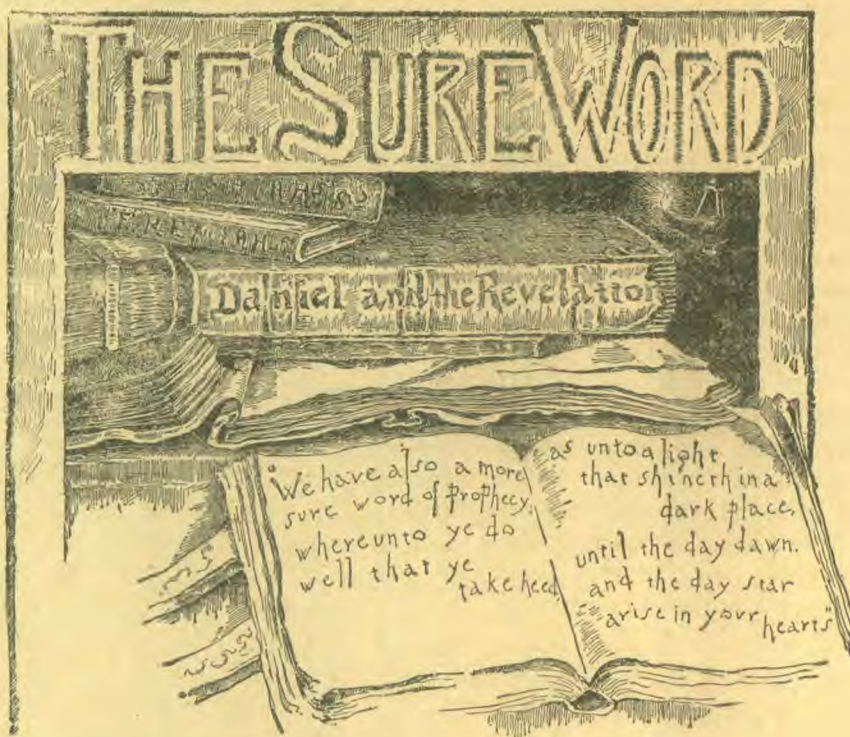 THE SURE WORD
JEREMIAH
Daniel and the Revelation
"We have also a more
sure word of prophecy,
whereunto ye do
well that ye
take heed,
as unto a light
that shineth in a
dark place,
until the day dawn.
and the day star
arise in your hearts"